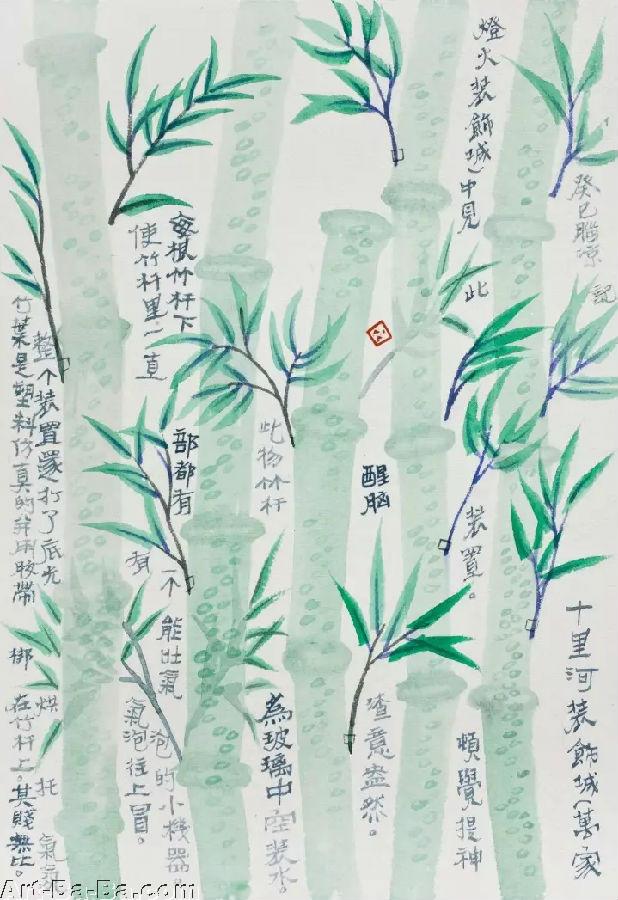 十里河装飾城(萬家
燈火装飾城)中見
此
装置。
頓覺提神
醒脑
渣意盎然。
此物竹杆
為玻璃中空装水。
每根竹杆下
部都有
一个
能吐氣
泡的小機器。
使竹杆里一直
有
氣泡往上冒。
整个装置還打了底光
烘托
氣氛
竹葉是塑料仿真的并用胶帶
绑
在竹杆上。其賤無比。
癸巳腦凉
記
Art-Ba-Ba.com